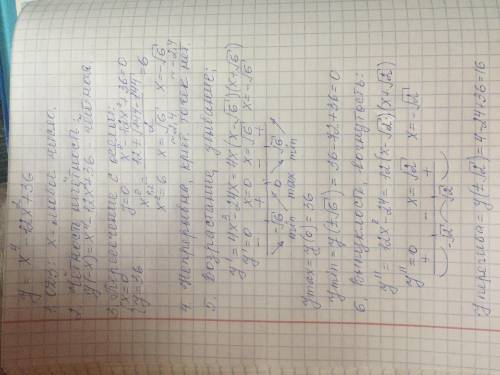 y = x⁴ - 12x² + 36
1. ОДЗ: x - любое число.
2. Чётность, нечётность
y(-x) = x⁴ - 12x² + 36 - чётная
3. Пересечение с осями:
{x=0 y=0 x⁴-12x²+36=0
{y=36 x² = (12±√144-144)/2 = 6
x² = 6 x=√6 x=-√6
≈2,4 ≈-2,4
4. Непрерывна, крит. точек нет
5. Возрастание, убывание:
y' = 4x³-24x = 4x(x-√6)(x+√6)
y'=0 x=0 x=√6 x=-√6
- + - +
-√6 0 √6
min max min
y max = y(0) = 36
y min = y(±√6) = 36-72+36=0
6. Выпуклость, вогнутость:
y'' = 12x²-24 = 12(x-√2)(x+√2)
y''=0 x=√2 x=-√2
+ - +
-√2 √2
y перегиба = y(±√2) = 4-24+36=16